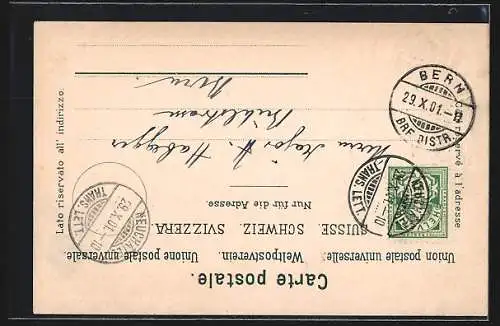 Carte postale.
Union postale universelle. Weltpostverein. Unione postale universale.
SUISSE. SCHWEIZ. SVIZZERA.
Nur für die Adresse.
Côté réservé à l'adresse
Lato riservato all' indirizzo.
Herrn Major Habegger
Bühlstrasse
Bern
BERN
29.X.01.-11
BRF. DISTR.
TRANS. LETT.
-10
HELVETIA
29.X.01.-10
TRANS. LETT.